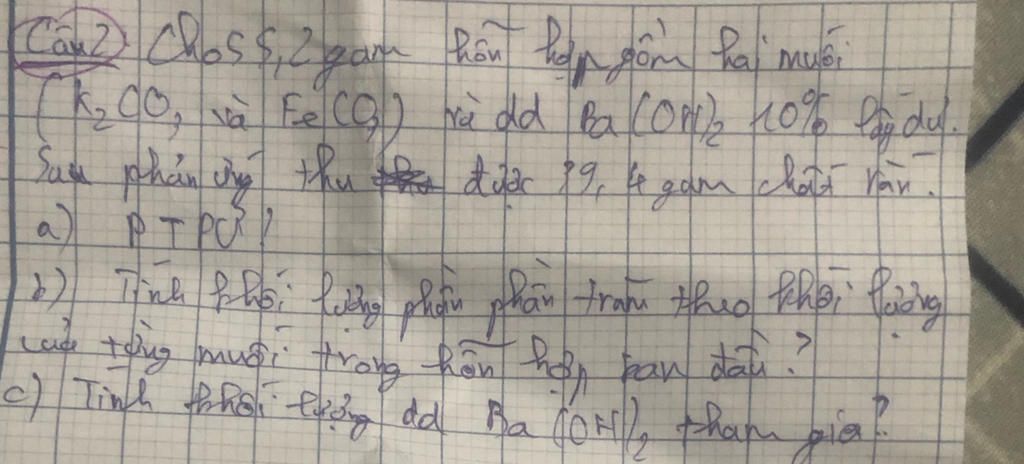 Câu 2 Cho 55,2 gam hỗn hợp gồm hai muối
(K₂CO₃ và FeCO₃) và dd Ba(OH)₂ 10% lấy dư.
Sau phản ứng thu được 39,4 gam chất rắn.
a) PTPƯ?
b) Tính khối lượng phần phần trăm theo khối lượng
của từng muối trong hỗn hợp ban đầu?
c) Tính khối lượng dd Ba(OH)₂ tham gia?